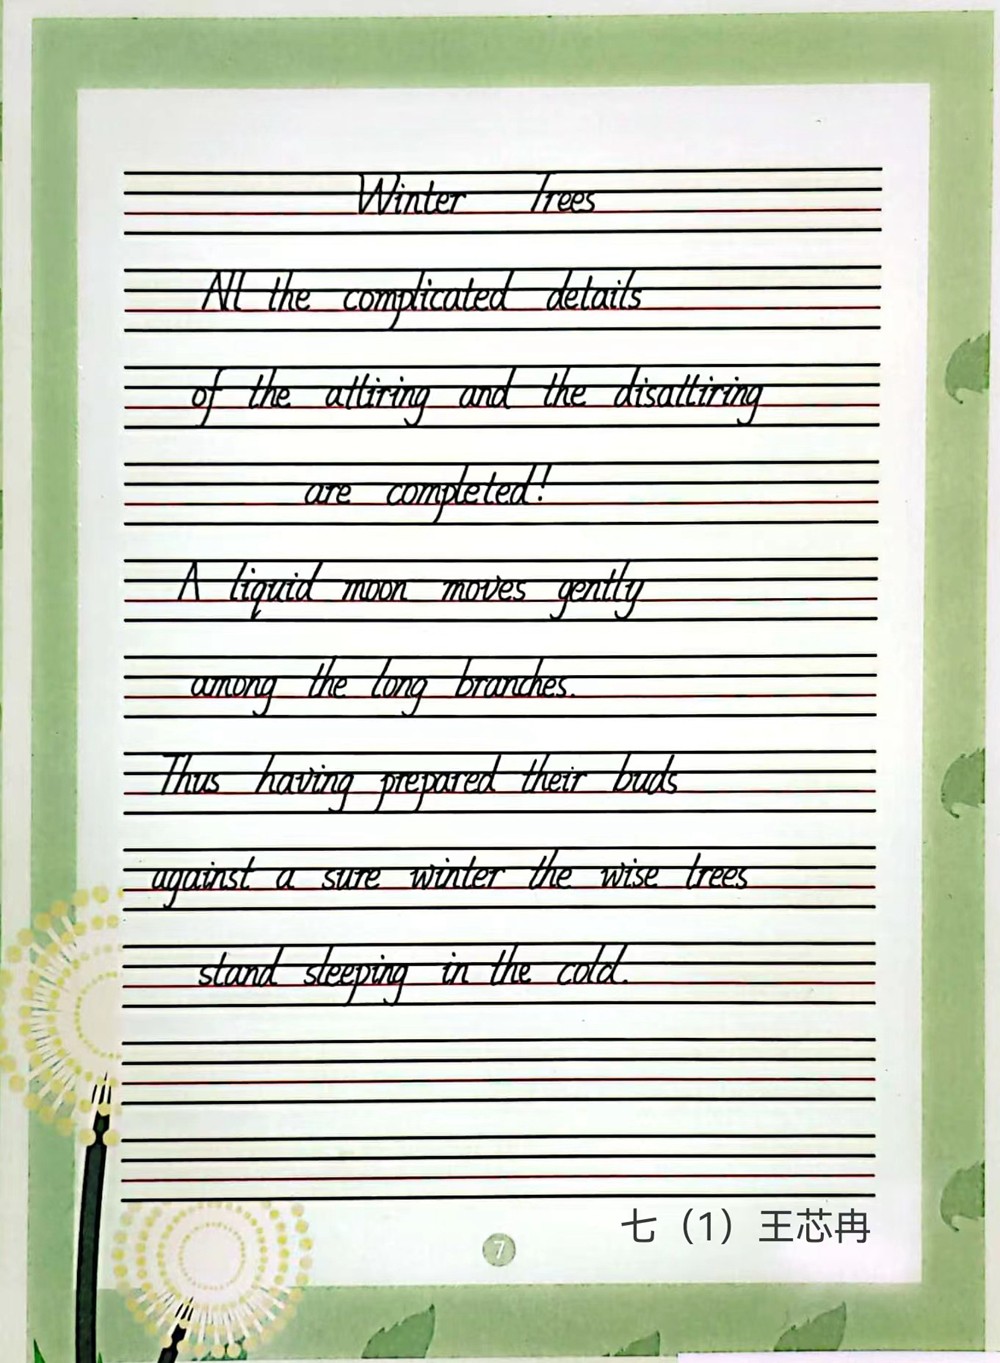 Winter Trees
All the complicated details
of the attiring and the disattiring
are completed!
A liquid moon moves gently
among the long branches.
Thus having prepared their buds
against a sure winter the wise trees
stand sleeping in the cold.
七（1）王芯冉
7